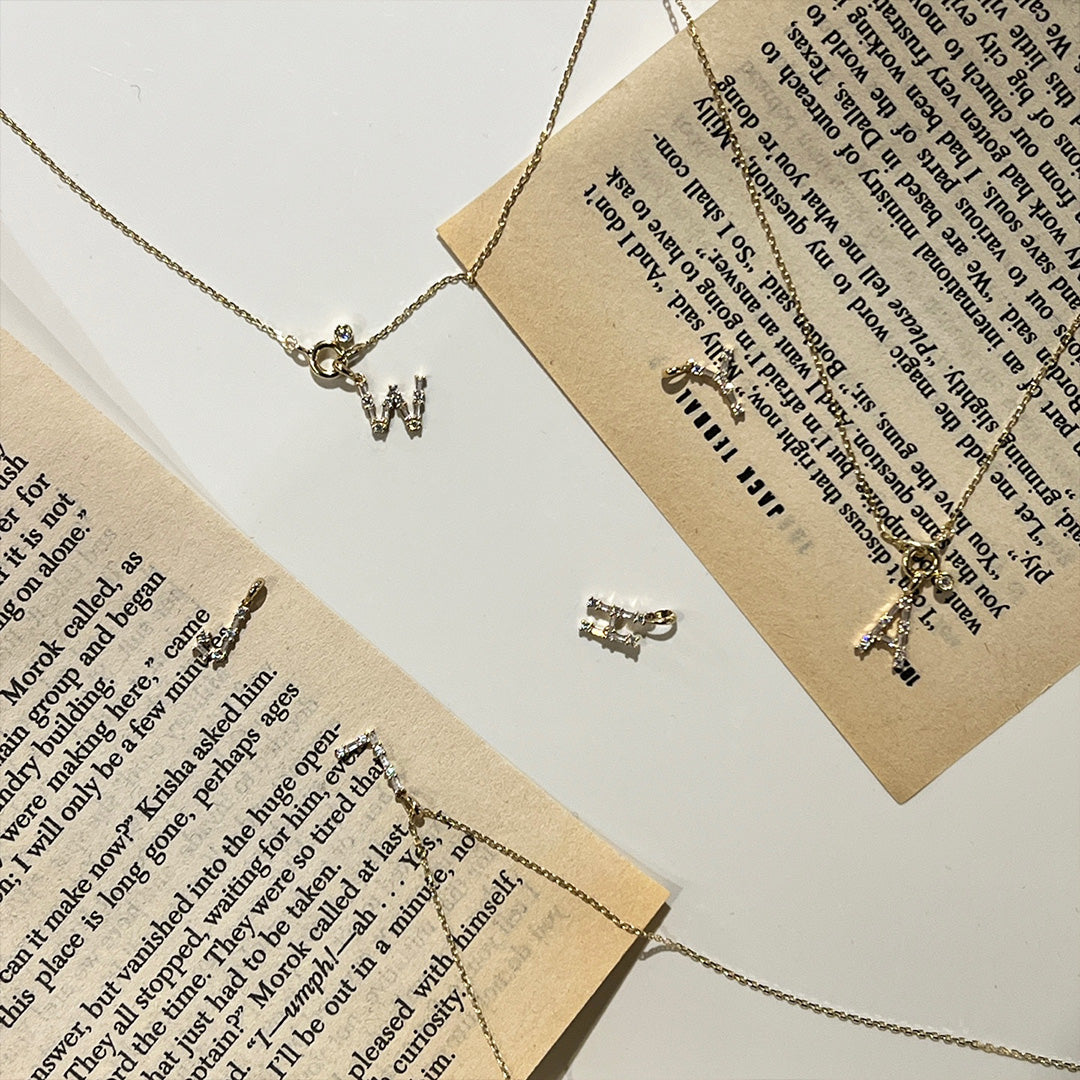 JACK
"I can't discuss that right now," Milly said. "And I don't
want impolite, but I'm afraid I'm going to have to ask
you that same question. And I want an answer."
"You have the guns, sir," Borden said. "So I shall com-
ply."
"Let me add the magic word to my question," Milly
said, grinning slightly. "Please tell me what you're doing
part of an international ministry of outreach to
said. "We are based in Dallas, Texas,
out to various parts of the world
and save souls. I had been working
My work had gotten very frustrati
from our church to mov
tions of big city evi
this little vil
We cal
ush
er for
if it is not
ng on alone."
Morok called, as
ain group and began
ndry building.
were making here," came
n; I will only be a few minutes
can it make now?" Krisha asked him.
this place is long gone, perhaps ages
nswer, but vanished into the huge open-
They all stopped, waiting for him, eve
rd the time. They were so tired that
hat just had to be taken.
ptain?" Morok called at last.
d. "I—umph!—ah . . . Yes,
I'll be out in a minute, no
pleased with himself,
curiosity.
im.